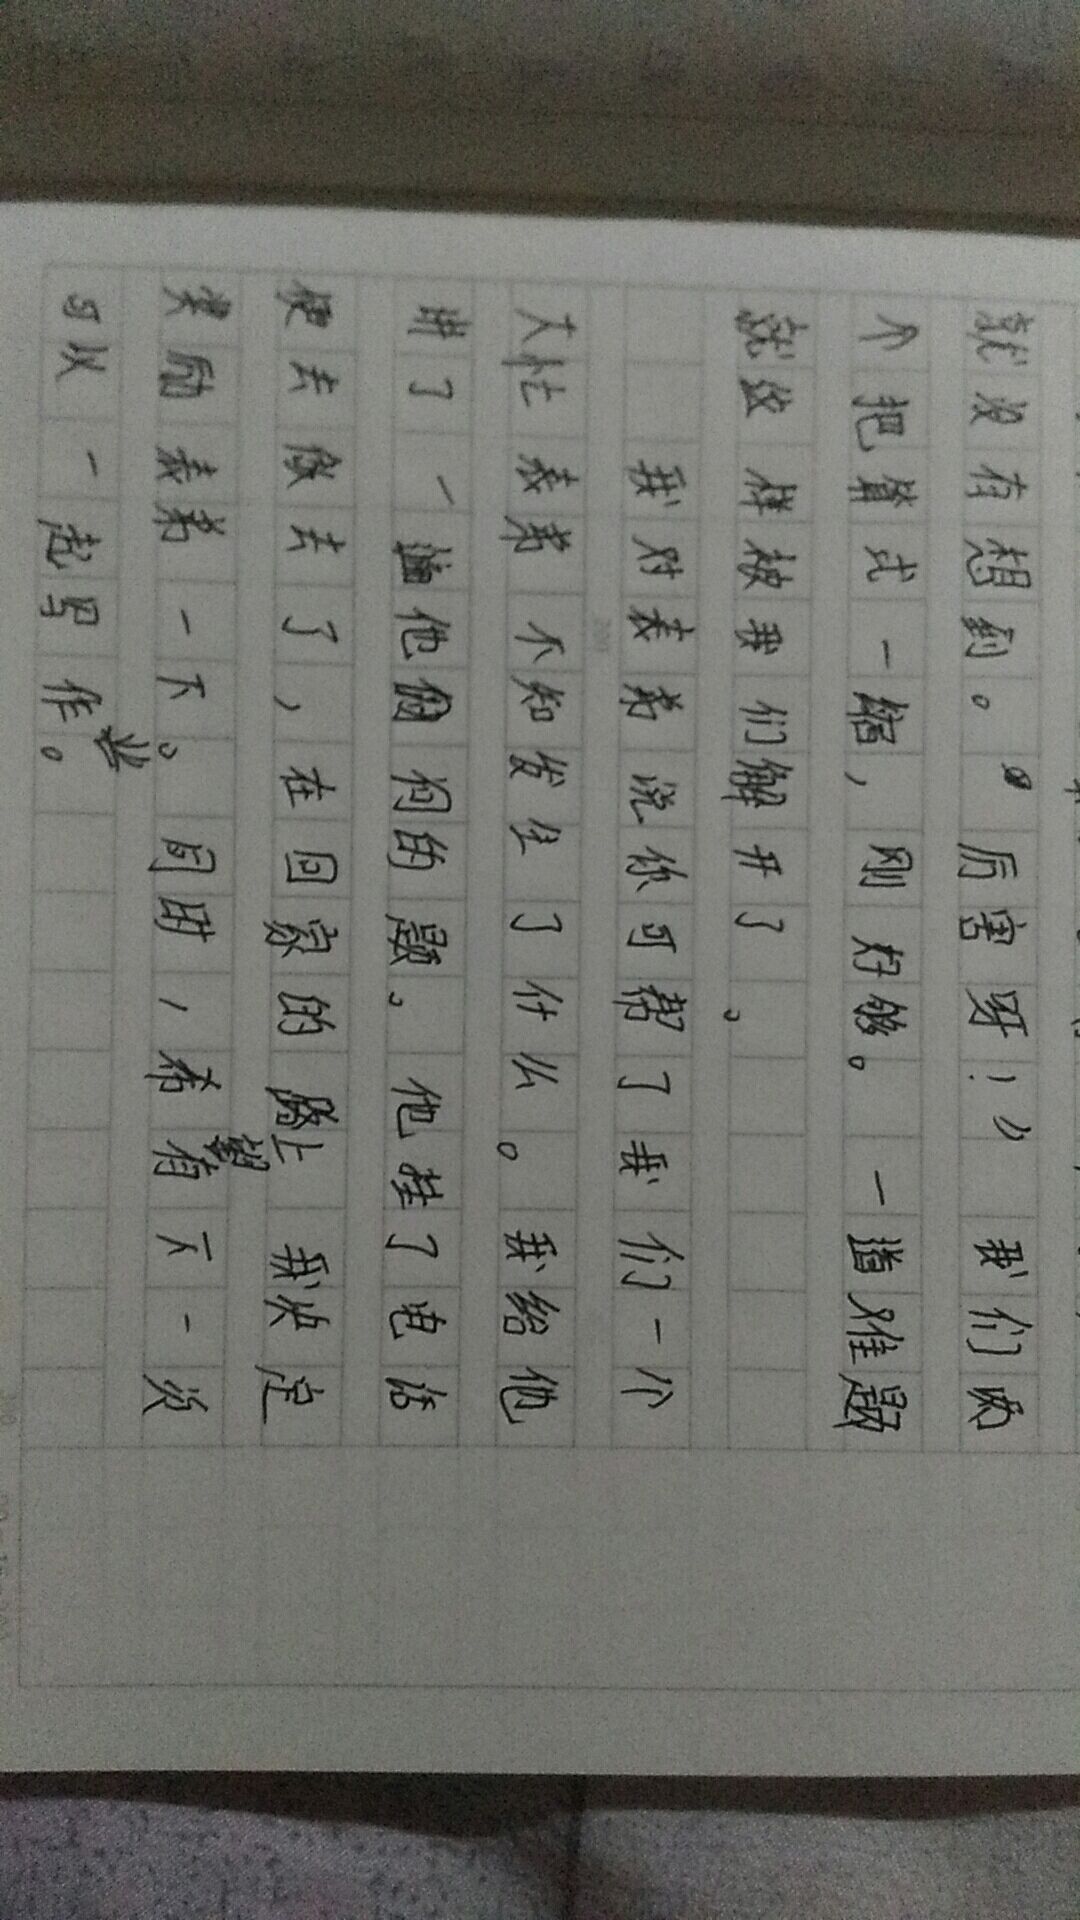 就没有想到。厉害呀！” 我们两
个把算式一缩，刚好够。一道难题
就这样被我们解开了。
我对表弟说你可帮了我们一个
大忙表弟不知发生了什么。我给他
讲了一遍他问的题。他挂了电话
便去做去了，在回家的路上我决定
奖励表弟一下。同时，希望有不一须
可以一起写作业。